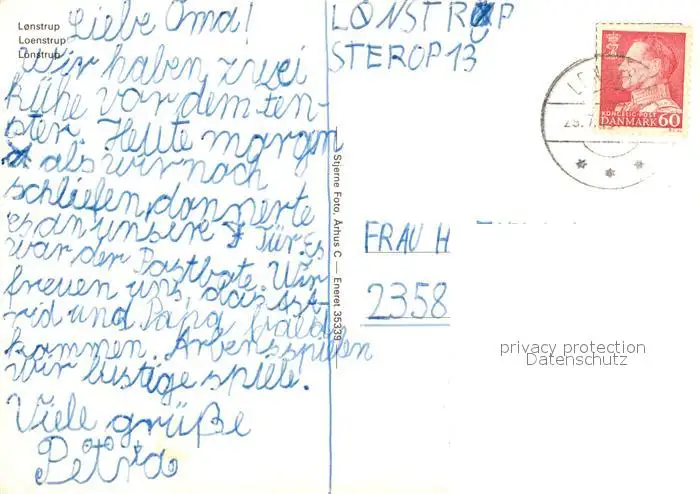 Lønstrup
Loenstrup
Lönstrup
Liebe Oma!
Wir haben zwei
kühe vor dem fen-
ster. Heute morgen
als wir noch
schliefen donnerte
es an unsere Tür. Es
war der Postbote. Wir
freuen uns, das Ast-
rid und Papa bald
kommen. Abens spielen
wir lustige spiele.
Viele grüße
Petra
LØNSTRUP
STEROP 13
Stjerne Foto, Århus C — Eneret 35339
KONGELIG POST
DANMARK 60
FRAU H
2358
privacy protection
Datenschutz